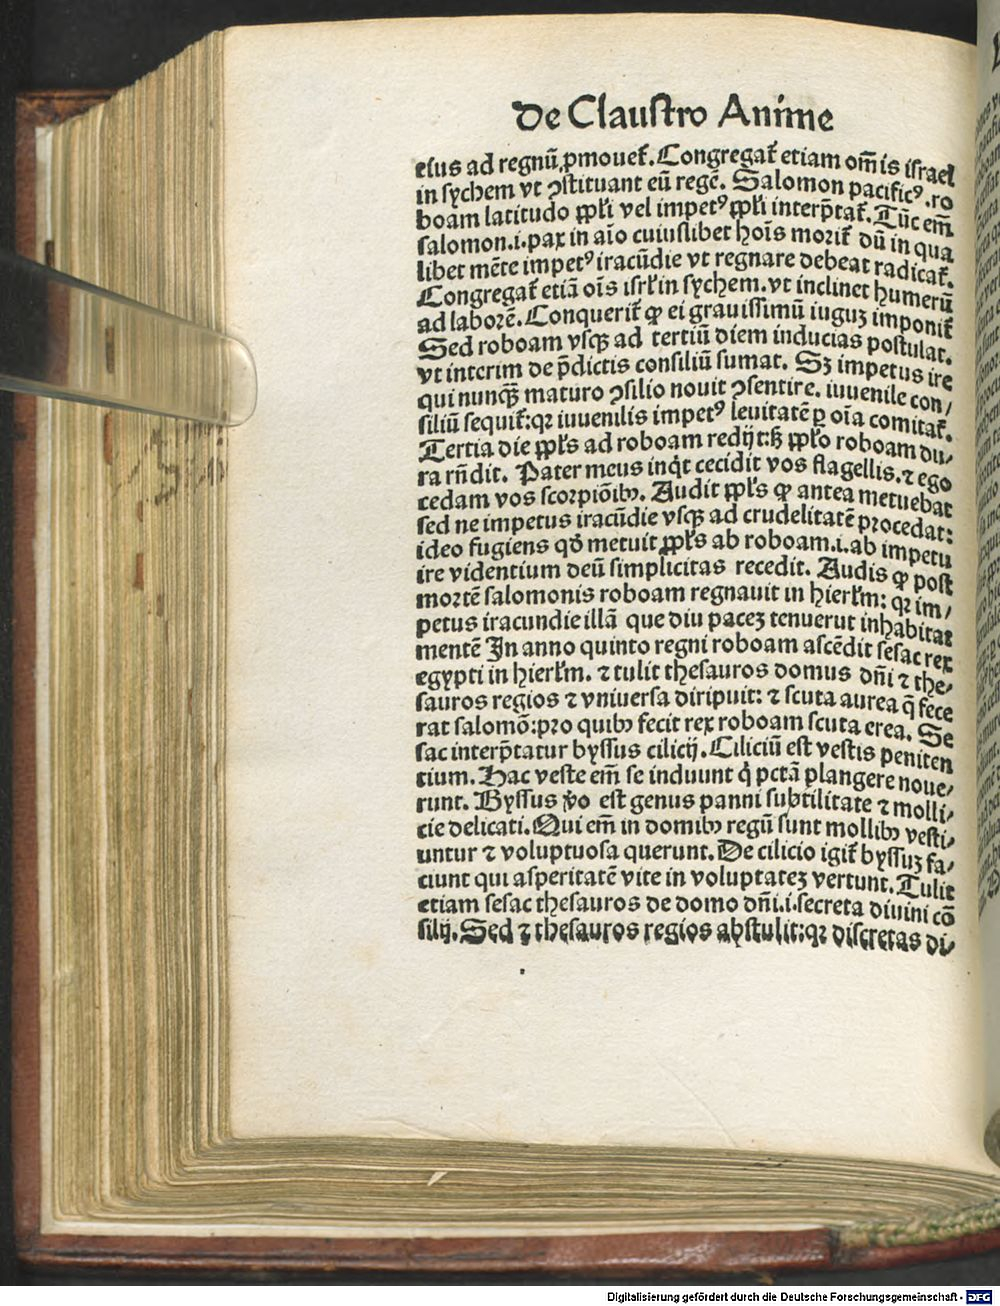 De Claustro Anime
eius ad regnū ꝓmouet᷑. Congregat᷑ etiam om̄is israel
in sychem vt ꝯstituant eū regē. Salomon pacificꝰ. ro
boam latitudo ppl'i vel impetꝰ ppl'i interp̄tat᷑. Tūc em̄
salomon .i. pax in aīo cuiuslibet hoīs morit᷑ dū in qua
libet mēte impetꝰ iracūdie vt regnare debeat radicat᷑.
Congregat᷑ etiā oīs isrl' in sychem. vt inclinet humerū
ad laborē. Conquerit᷑ ꝙ ei grauissimū iuguʒ imponit᷑
Sed roboam vsqꝫ ad tertiū diem inducias postulat.
vt interim de p̄dictis consiliū sumat. Sʒ impetus ire
qui nunqꝫ̄ maturo ꝯsilio nouit ꝯsentire. iuuenile con/
siliū sequit᷑: qꝛ iuuenilis impetꝰ leuitatē ꝑ oīa comitat᷑.
Tertia die ppl's ad roboam redijt: sꝫ ppl'o roboam du/
ra rn̄dit. Pater meus inq̇t cecidit vos flagellis. ⁊ ego
cedam vos scorpiōibꝫ. Audit ppl's ꝙ antea metuebat
sed ne impetus iracūdie vsqꝫ ad crudelitatē procedat:
ideo fugiens qd̄ metuit ppl's ab roboam .i. ab impetu
ire videntium deū simplicitas recedit. Audis ꝙ post
mortē salomonis roboam regnauit in hierl'm: qꝛ im/
petus iracundie illā que diu paceʒ tenuerut inhabitat
mentē In anno quinto regni roboam ascēdit sesac rex
egypti in hierl'm. ⁊ tulit thesauros domus dn̄i ⁊ the/
sauros regios ⁊ vniuersa diripuit: ⁊ scuta aurea q̄ fece
rat salomō: pro quibꝫ fecit rex roboam scuta erea. Se
sac interp̄tatur byssus cilicij. Ciliciū est vestis peniten
tium. Hac veste em̄ se induunt q̇ pctā plangere noue/
runt. Byssus v̊o est genus panni subtilitate ⁊ molli/
cie delicati. Qui em̄ in domibꝫ regū sunt mollibꝫ vesti/
untur ⁊ voluptuosa querunt. De cilicio igit᷑ byssuʒ fa/
ciunt qui asperitatē vite in voluptateʒ vertunt. Tulit
etiam sesac thesauros de domo dn̄i .i. secreta diuini cō
silij. Sed ⁊ thesauros regios abstulit: qꝛ discretas di/
Digitalisierung gefördert durch die Deutsche Forschungsgemeinschaft - DFG